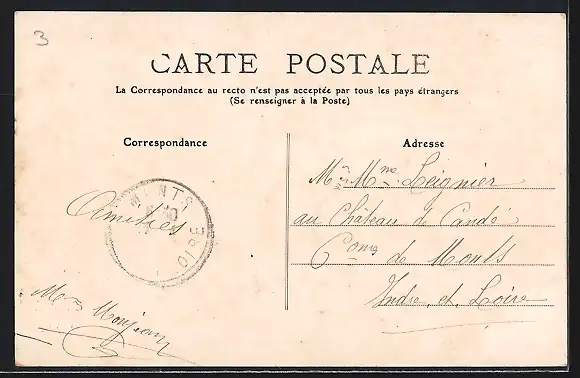 3
CARTE POSTALE
La Correspondance au recto n'est pas acceptée par tous les pays étrangers
(Se renseigner à la Poste)
Correspondance
Amitiés
MONTS
OIRE
Adresse
Mr Mme Leignier
au Château de Candé
Com de Monts
Indre et Loire